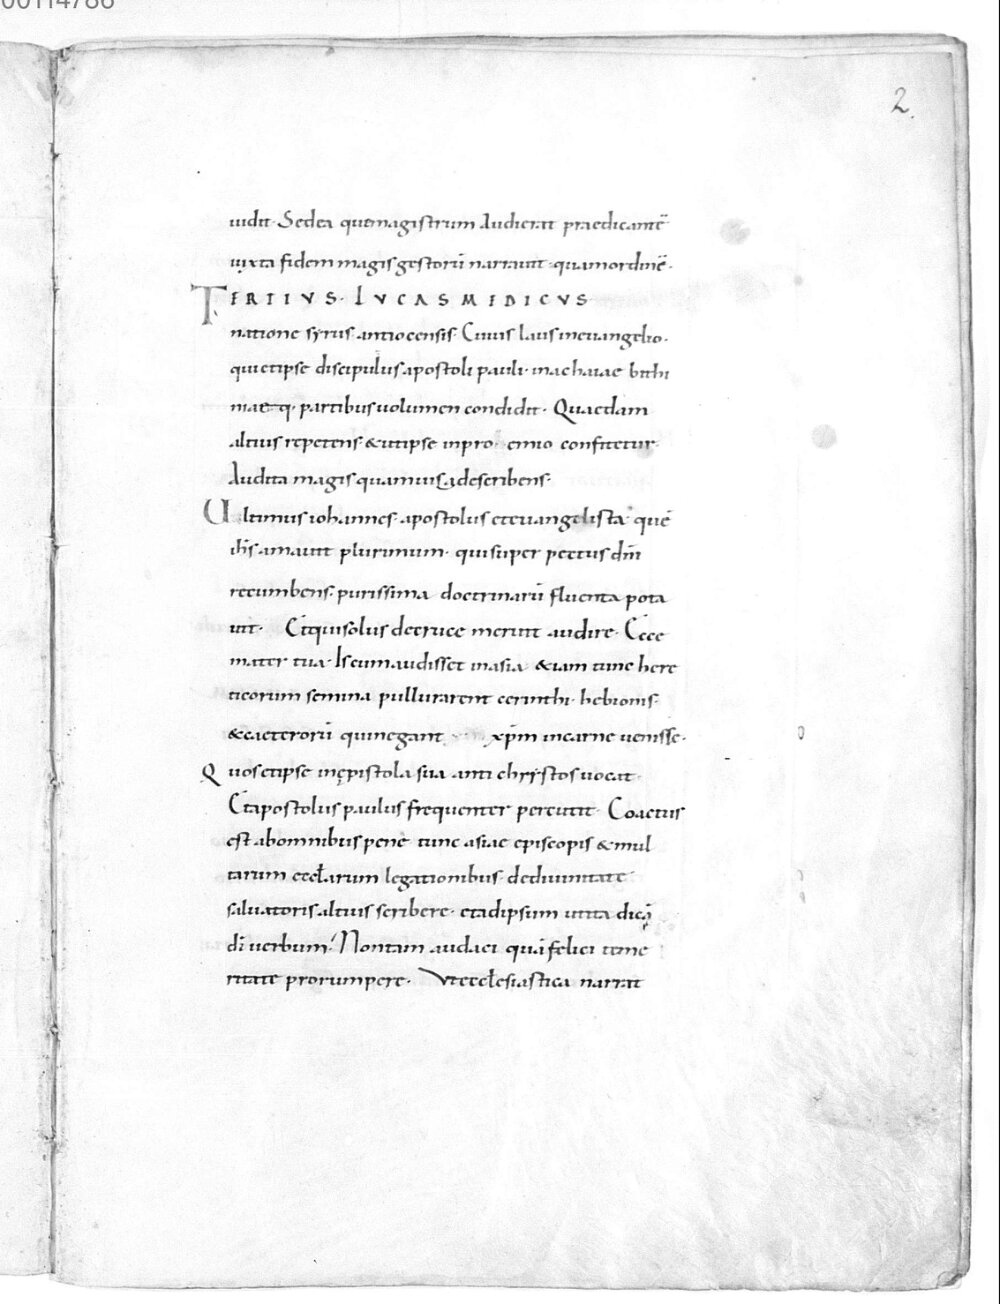 00114786
2.
uidit· Sedea quemagistrum Audierat praedicantē
iuxta fidem magis gestorū narrauit· quamordinē·
TERTIVS· LVCAS MEDICVS
natione syrus· antiocensis· Cuius laus ineuangelio·
quietipse discipulus apostoli pauli· inachaiae bithi
niaeq· partibus uolumen condidit· Quaedam
altius repetens· &utipse inpro emio confitetur·
Audita magis quamuisa describens·
Ultimus iohannes· apostolus eteuangelista quē
ihs amauit plurimum· quisuper pectus dm̄
recumbens· purissima doctrinarū fluenta pota
uit· Etquisolus decruce meruit audire· Ecce
mater tua· Iscumaudisset inasia &iam tunc here
ticorum semina pullurarent cerinthi· hebionis·
&caeterorū quinegant xpm̄ incarne uenisse·
Quosetipse inepistola sua anti chrystos uocat·
Etapostolus paulus frequenter percutit· Coactus
est abomnibus pene tunc asiae episcopis &mul
tarum eccłarum legationibus· dediuinitate
saluatoris altius scribere· etadipsum utita dicā
dī uerbum· Nontam audaci quā felici teme
ritate prorumpere· Vtecclesiastica narrat